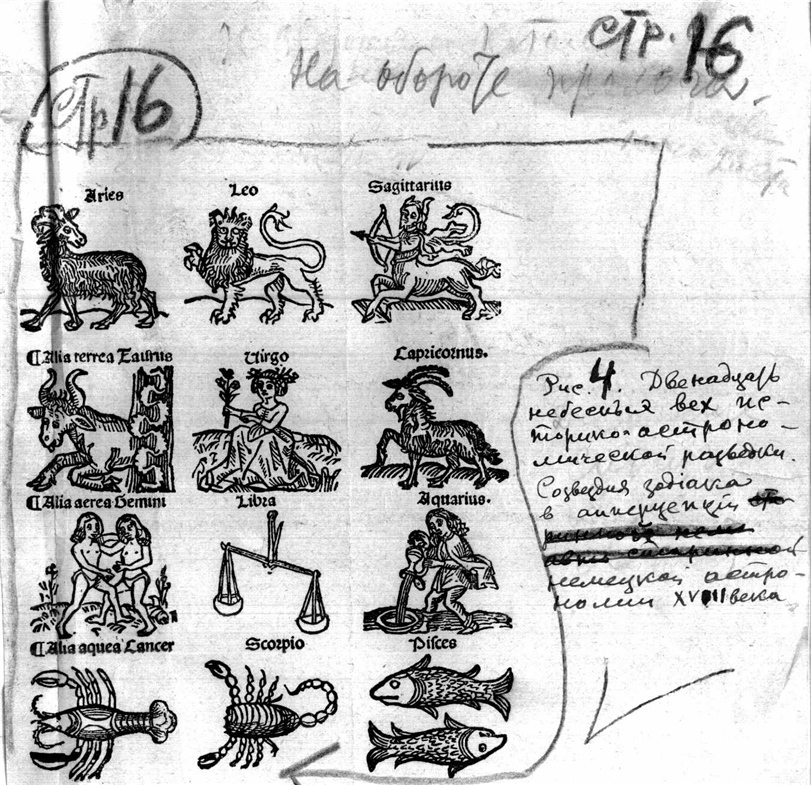 стр. 16
На обороте
стр 16
Aries
Leo
Sagittarius
¶ Alia terrea Taurus
Virgo
Capricornus.
¶ Alia aerea Gemini
Libra
Aquarius.
¶ Alia aquea Cancer
Scorpio
Pisces
Рис. 4. Двенадцать
небесных вех ис-
торико-астроно-
мической разведки.
Созвездия зодіака
в апперцепціи
немецкой астро-
номии XVIII века